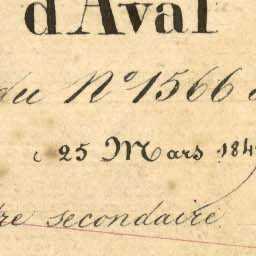 d'Aval
du N° 1566
25 Mars 184
secondaire